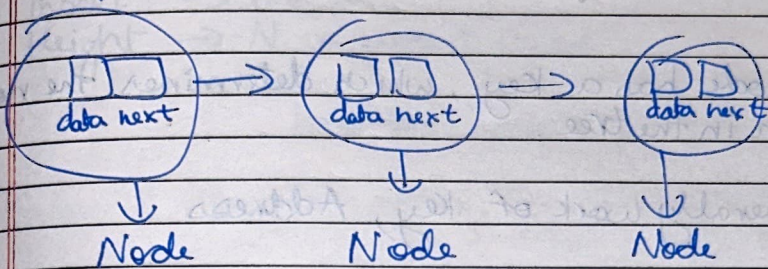 data next data next data next
Node Node Node